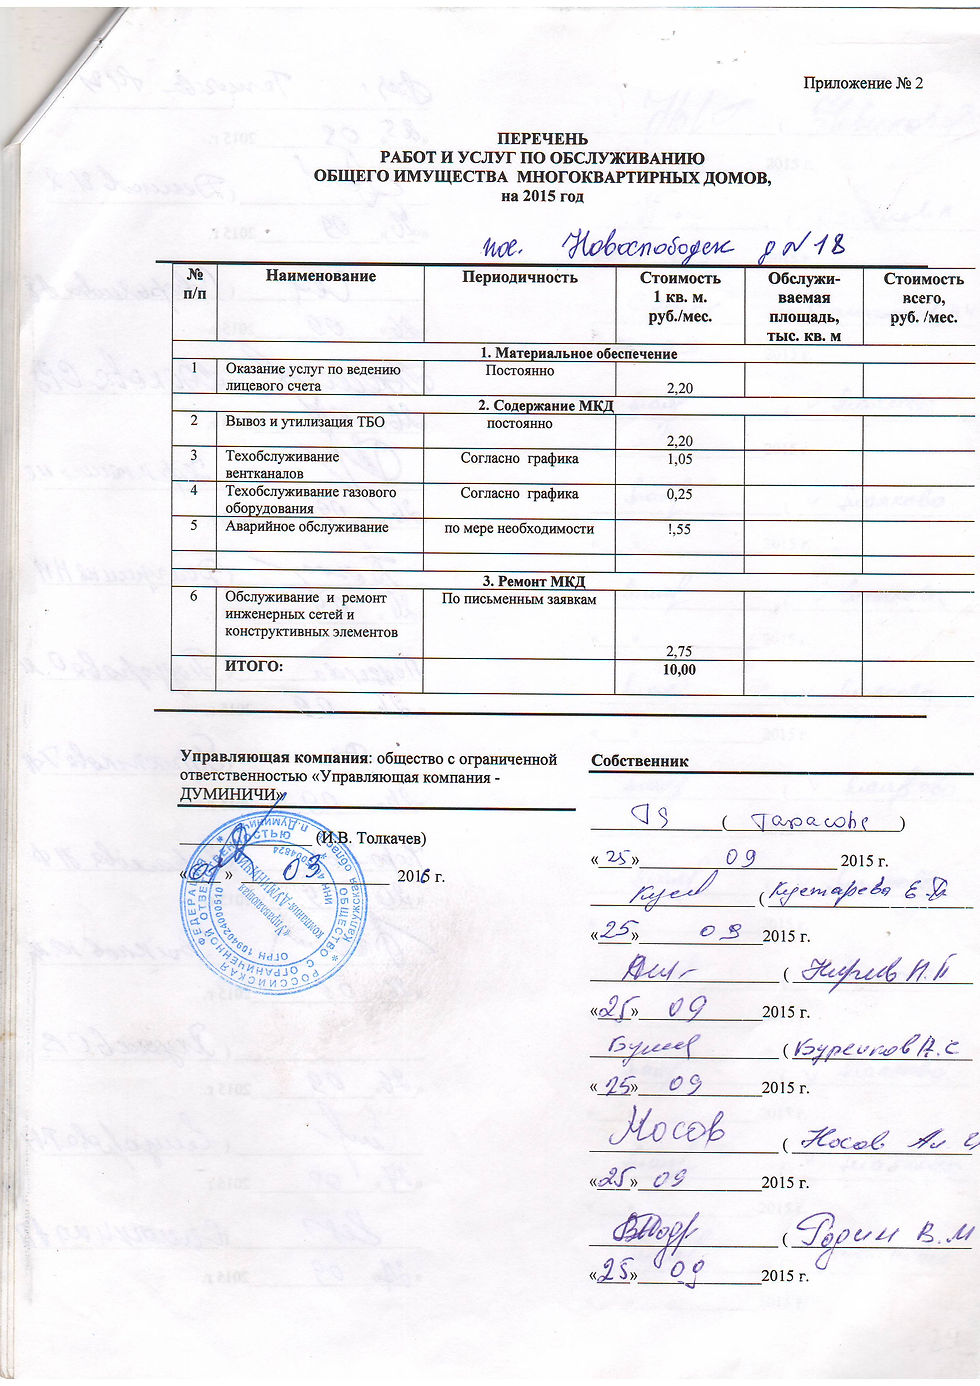 Приложение № 2
ПЕРЕЧЕНЬ
РАБОТ И УСЛУГ ПО ОБСЛУЖИВАНИЮ
ОБЩЕГО ИМУЩЕСТВА МНОГОКВАРТИРНЫХ ДОМОВ,
на 2015 год
пос. Новослободск д № 18
№ п/п Наименование Периодичность Стоимость 1 кв. м. руб./мес. Обслужи-ваемая площадь, тыс. кв. м Стоимость всего, руб. /мес.
1. Материальное обеспечение
1 Оказание услуг по ведению лицевого счета Постоянно 2,20
2. Содержание МКД
2 Вывоз и утилизация ТБО постоянно 2,20
3 Техобслуживание вентканалов Согласно графика 1,05
4 Техобслуживание газового оборудования Согласно графика 0,25
5 Аварийное обслуживание по мере необходимости !,55
3. Ремонт МКД
6 Обслуживание и ремонт инженерных сетей и конструктивных элементов По письменным заявкам 2,75
ИТОГО: 10,00
Управляющая компания: общество с ограниченной
ответственностью «Управляющая компания -
ДУМИНИЧИ»
(И.В. Толкачев)
« » 03 2016 г.
Собственник
( Тарасова )
«25» 09 2015 г.
( Кустарева Е.
«25» 09 2015 г.
(
«25» 09 2015 г.
( Бурсиков А.С
«25» 09 2015 г.
Носов ( Носов Ал
«25» 09 2015 г.
( Родин В.М
«25» 09 2015 г.
РОССИЙСКАЯ ФЕДЕРАЦИЯ * Калужская область п.Думиничи
ОБЩЕСТВО С ОГРАНИЧЕННОЙ ОТВЕТСТВЕННОСТЬЮ
ОГРН 1094024000510
«Управляющая компания-ДУМИНИЧИ»